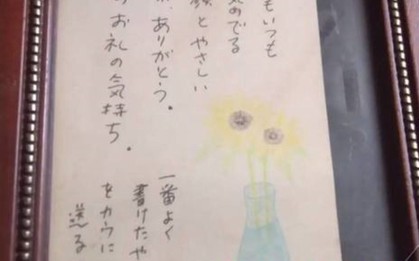 もいつも
気のでる
顔とやさしい
、ありがとう。
お礼の気持ち。
一番よく
書けたや
をカウに
送る